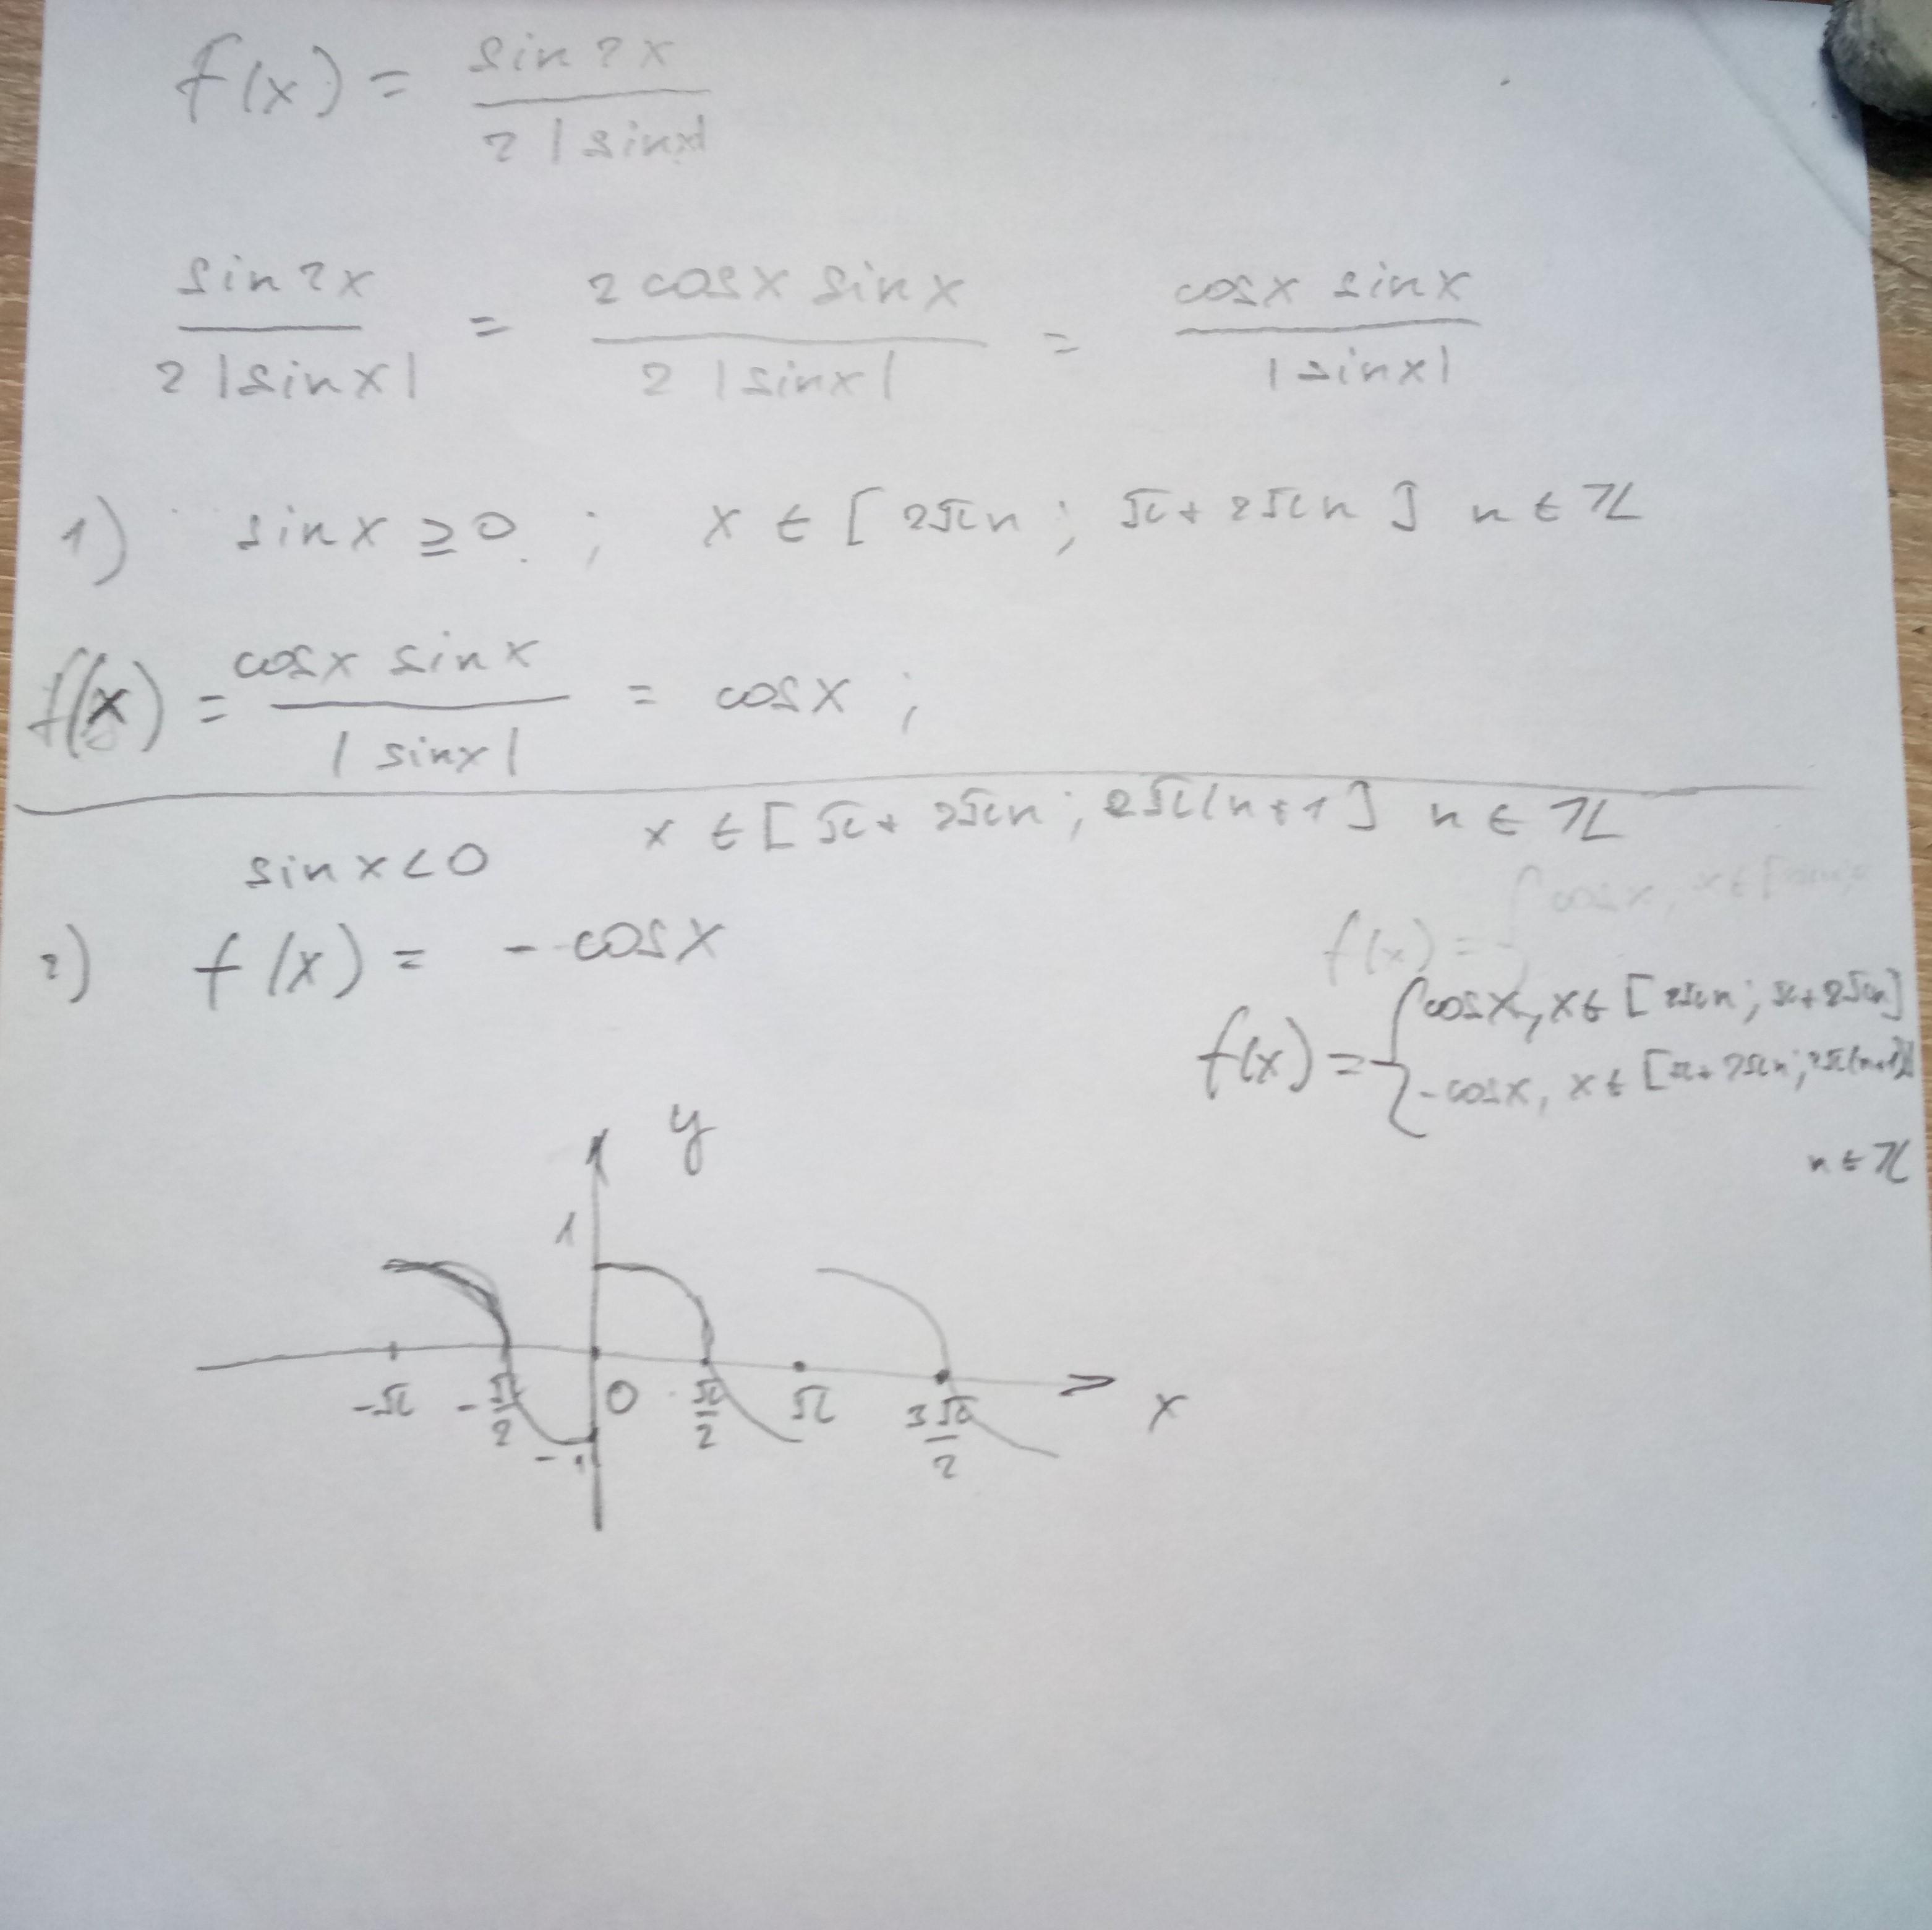 f(x) = sin 2x / 2 |sinx|
sin 2x / 2 |sinx| = 2 cosx sinx / 2 |sinx| = cosx sinx / |sinx|
1) sinx ≥ 0 ; x ∈ [2πn ; π + 2πn] n ∈ ℤ
f(x) = cosx sinx / |sinx| = cosx ;
sinx < 0 x ∈ [π + 2πn ; 2π(n+1] n ∈ ℤ
f(x) = { cosx, x ∈ [
2) f(x) = - cosx
f(x) = { cosx, x ∈ [2πn ; π + 2πn]
-cosx, x ∈ [π + 2πn ; 2π(n+1)]
n ∈ ℤ
y
1
-π -π/2 0 π/2 π 3π/2 x
-1